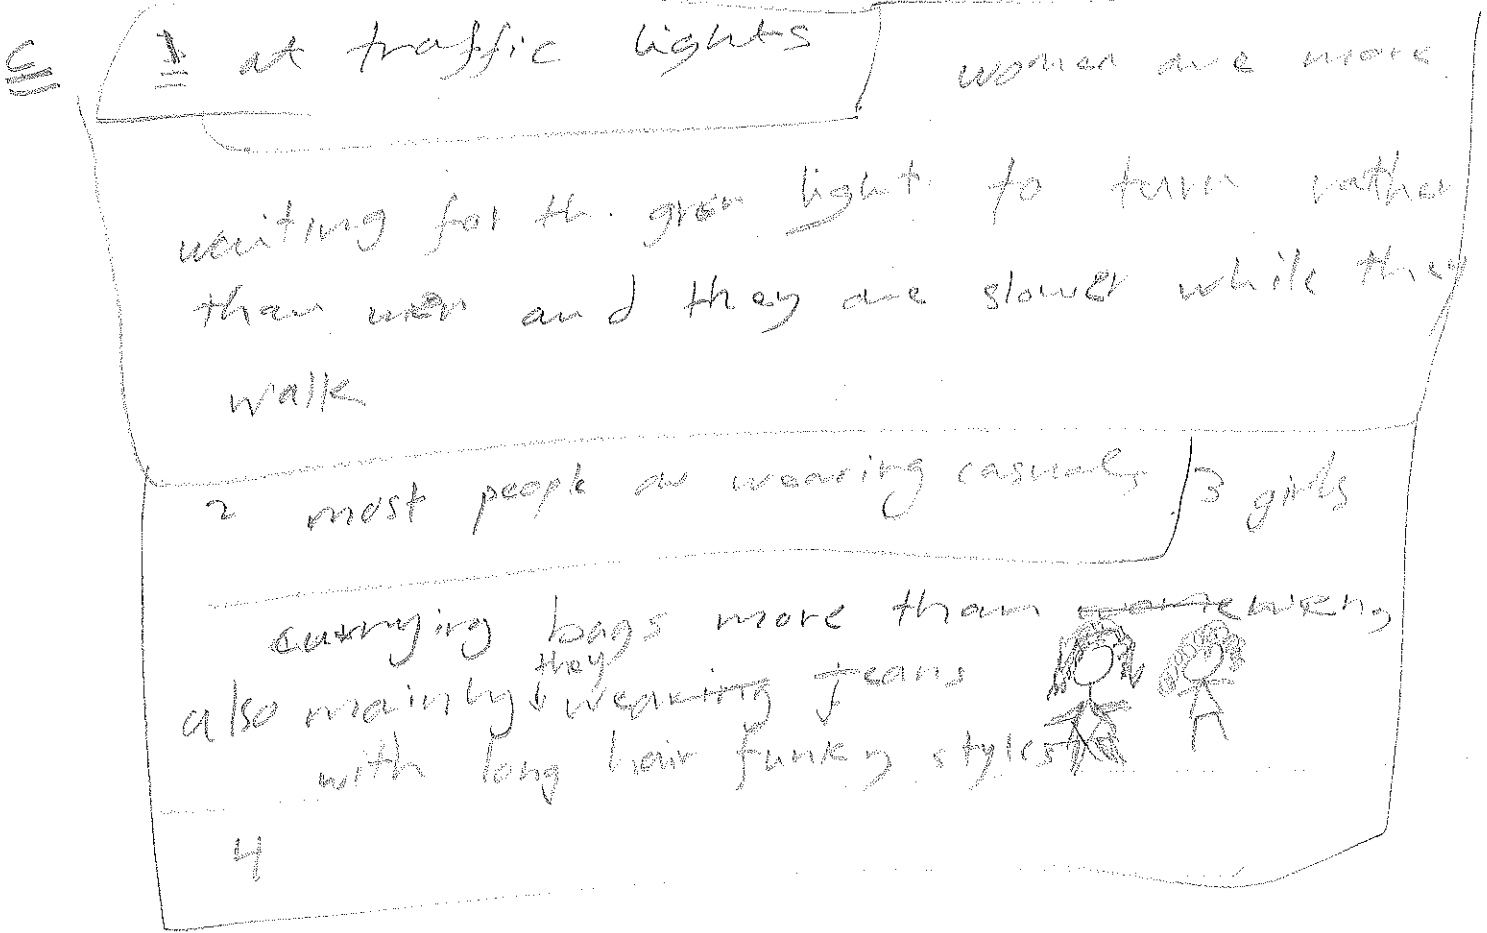 C 1 at traffic lights women are more
waiting for th. green light to turn rather
than men and they are slower while they
walk
2 most people are wearing casuals 3 girls
carrying bags more than men,
also mainly they wear jeans
with long hair funky styles
4